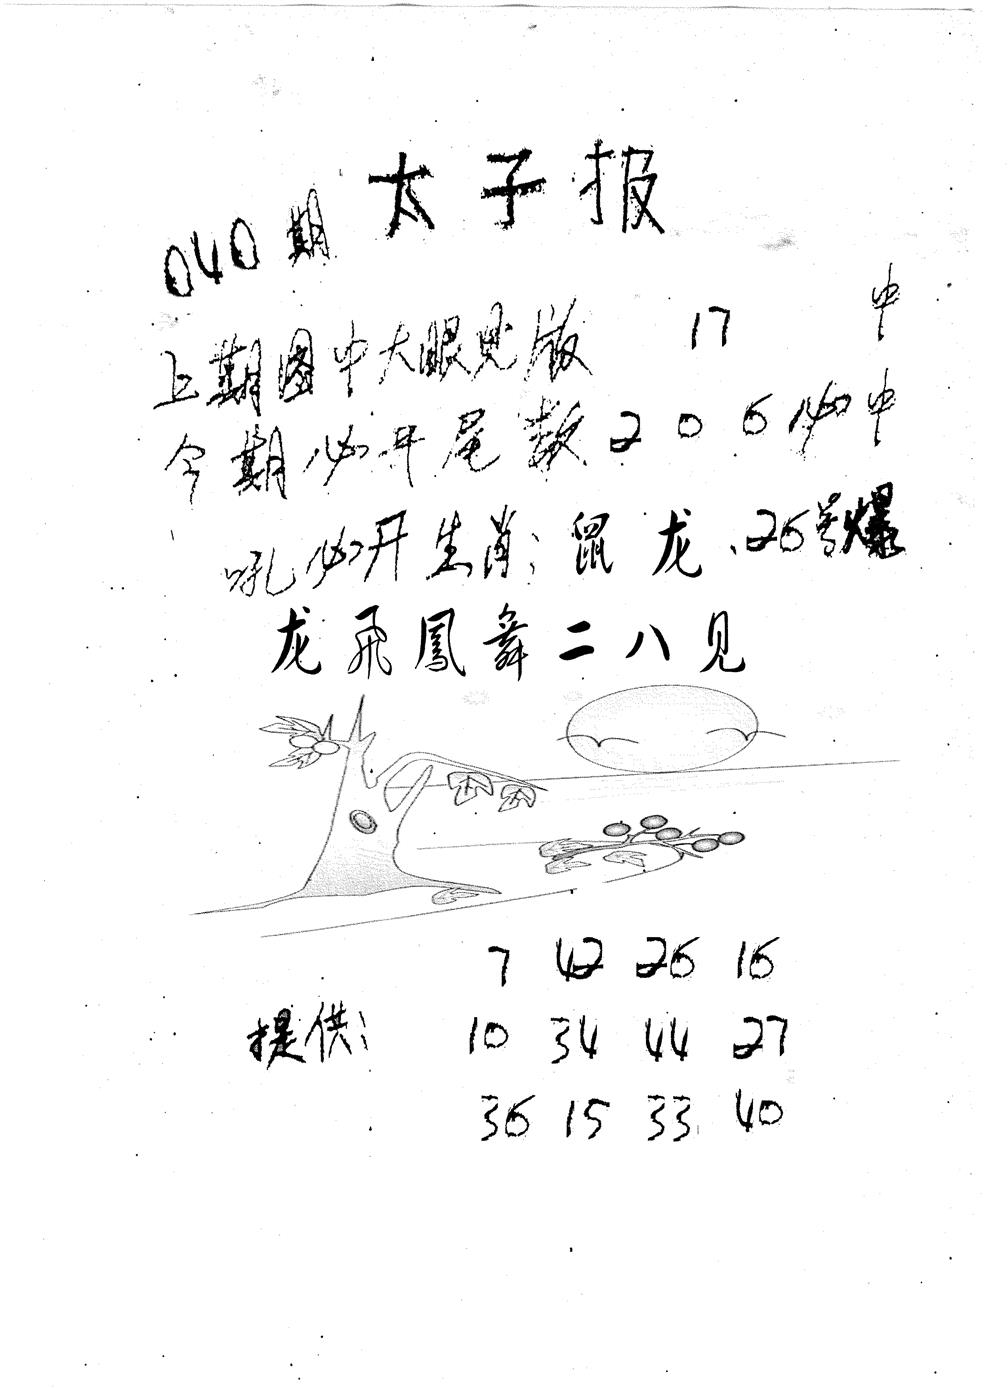 太子报
040期
上期图中大眼见版 17 中
今期必开尾数 2 0 6 必中
吼必开生肖：鼠 龙、26号爆
龙飛鳳舞二八见
7 42 26 16
提供： 10 34 44 27
36 15 33 40